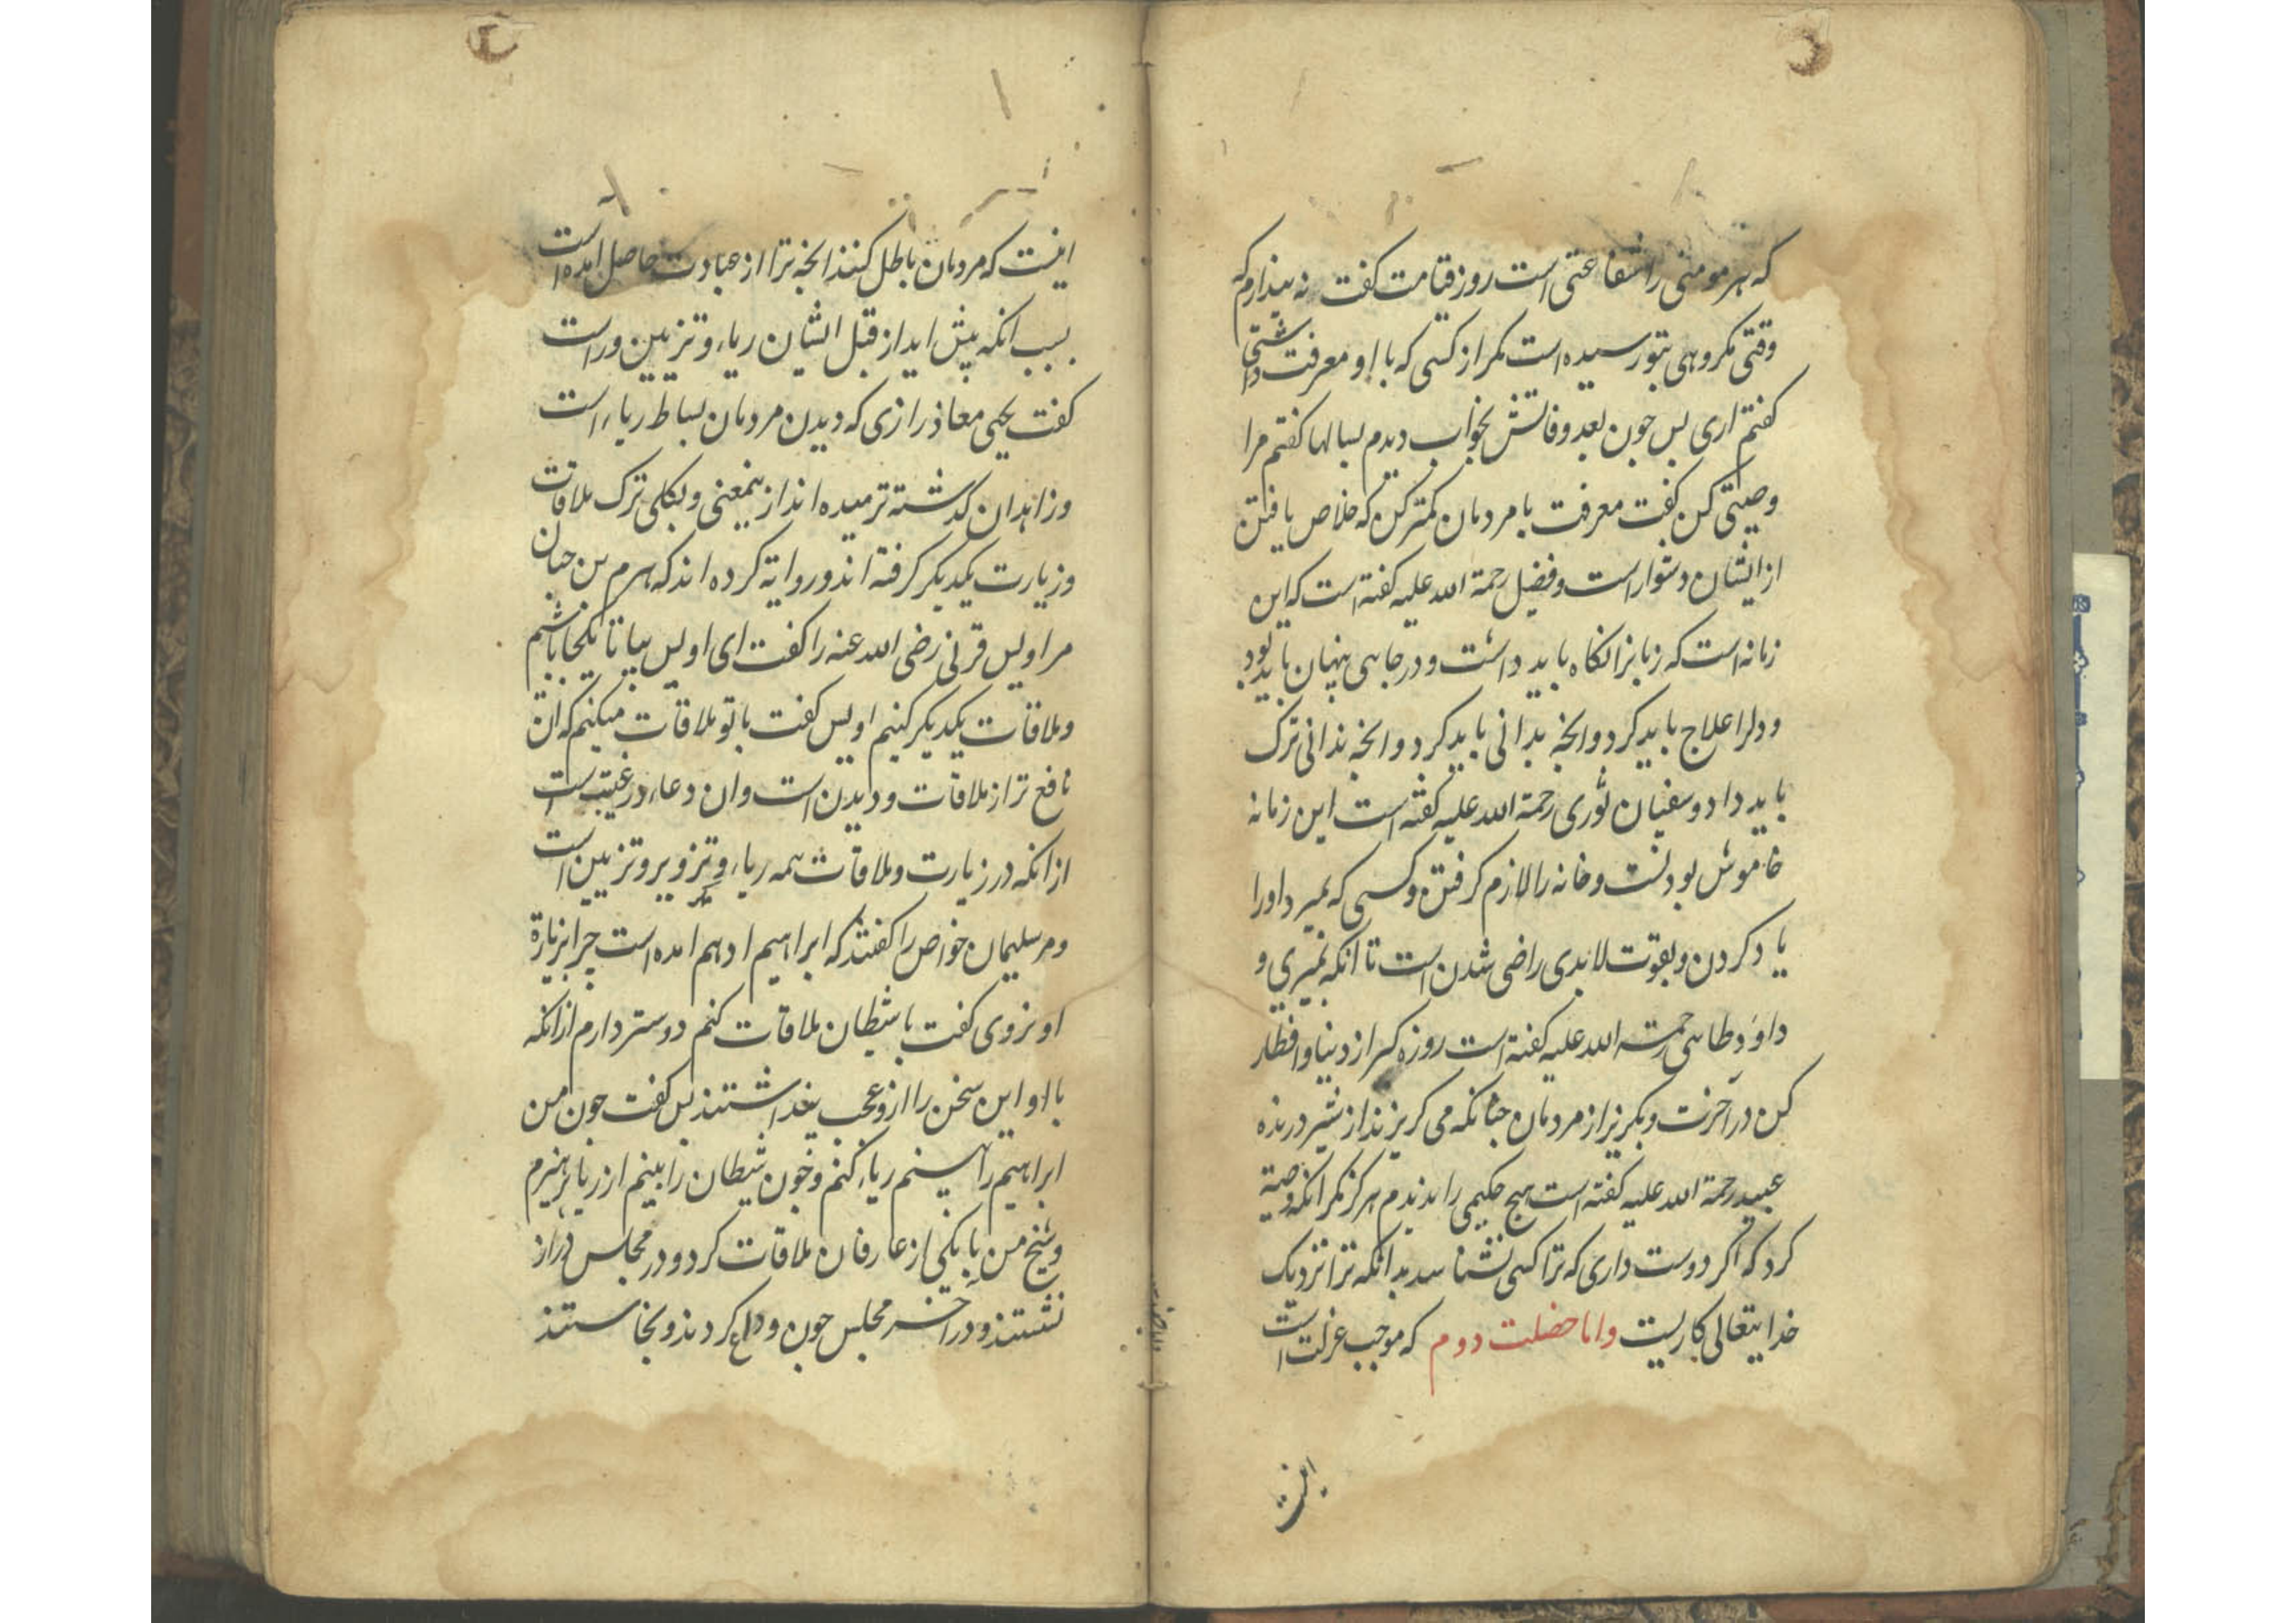 که هر مومنی را شفاعتی است روز قیامت کفت نه پندارم که
وقتی مکروهی بتو رسیده است مکر از کسی که با او معرفت داشتی
کفتم اری بس جون بعد وفاتش بخواب دیدم بسالها کفتم مرا
وصیتی کن کفت معرفت با مردمان کمتر کن که خلاص یافتن
از ایشان دشوار است و فضیل رحمة الله علیه کفته است که این
زمانه است که زبانرا نکاه باید داشت و در جاهی پنهان باید بود
و دلرا علاج باید کرد و انجه بدانی باید کرد و انجه ندانی ترک
باید داد و سفیان ثوری رحمة الله علیه کفته است این زمانه
خاموش بودنست و خانه را لازم کرفتن و کسی که بمیرد او را
یاد کردن و بقوت لابدی راضی شدن است تا انکه بمیری و
داوٗد طاہی رحمة الله علیه کفته است روزه کیر از دنیا و افطار
کن در آخرت و بکریز از مردمان جنانکه می کریزند از شیر درنده
عبید رحمة الله علیه کفته است هیج حکیمی را ندیدم هرکز مکر انکه وصیة
کرد که اکر دوست داری که ترا کسی نشناسد بدانکه ترا نزدیک
خدایتعالی کاریست واما خصلت دوم که موجب عزلت است
اینست
اینست که مردمان باطل کنند انجه ترا از عبادت حاصل امده است
بسبب انکه پیش اید از قبل ایشان ریاء و تزیین و راست
کفت یحیی معاذ رازی که دیدن مردمان بساط ریاء است
و زاهدان کذشته ترسیده اند از ینمعنی و بکلی ترک ملاقات
و زیارت یکدیکر کرفته اند و روایة کرده اند که هرم بن حبان
مر اویس قرنی رضی الله عنه را کفت ای اویس بیا تا یکجا باشم
و ملاقات یکدیکر کنیم اویس کفت با تو ملاقات میکنم که ان
نافع تر از ملاقات و دیدن است و ان دعاء در غیبت است
از انکه در زیارت و ملاقات همه ریاء و تزویر و تزیین است
و مر سلیمان خواص را کفتند که ابراهیم ادهم امده است جرا بزیارة
او نروی کفت با شیطان ملاقات کنم دوستر دارم از انکه
با او این سخن را ازو عجب بنداشتند بس کفت جون من
ابراهیم را بینم ریاء کنم و جون شیطان را بینم از ریا بپرهیزم
و شیخ من با یکی از عارفان ملاقات کرد و در مجلس دراز
نشستند و در اخر مجلس جون وداع کردند و بخاستند